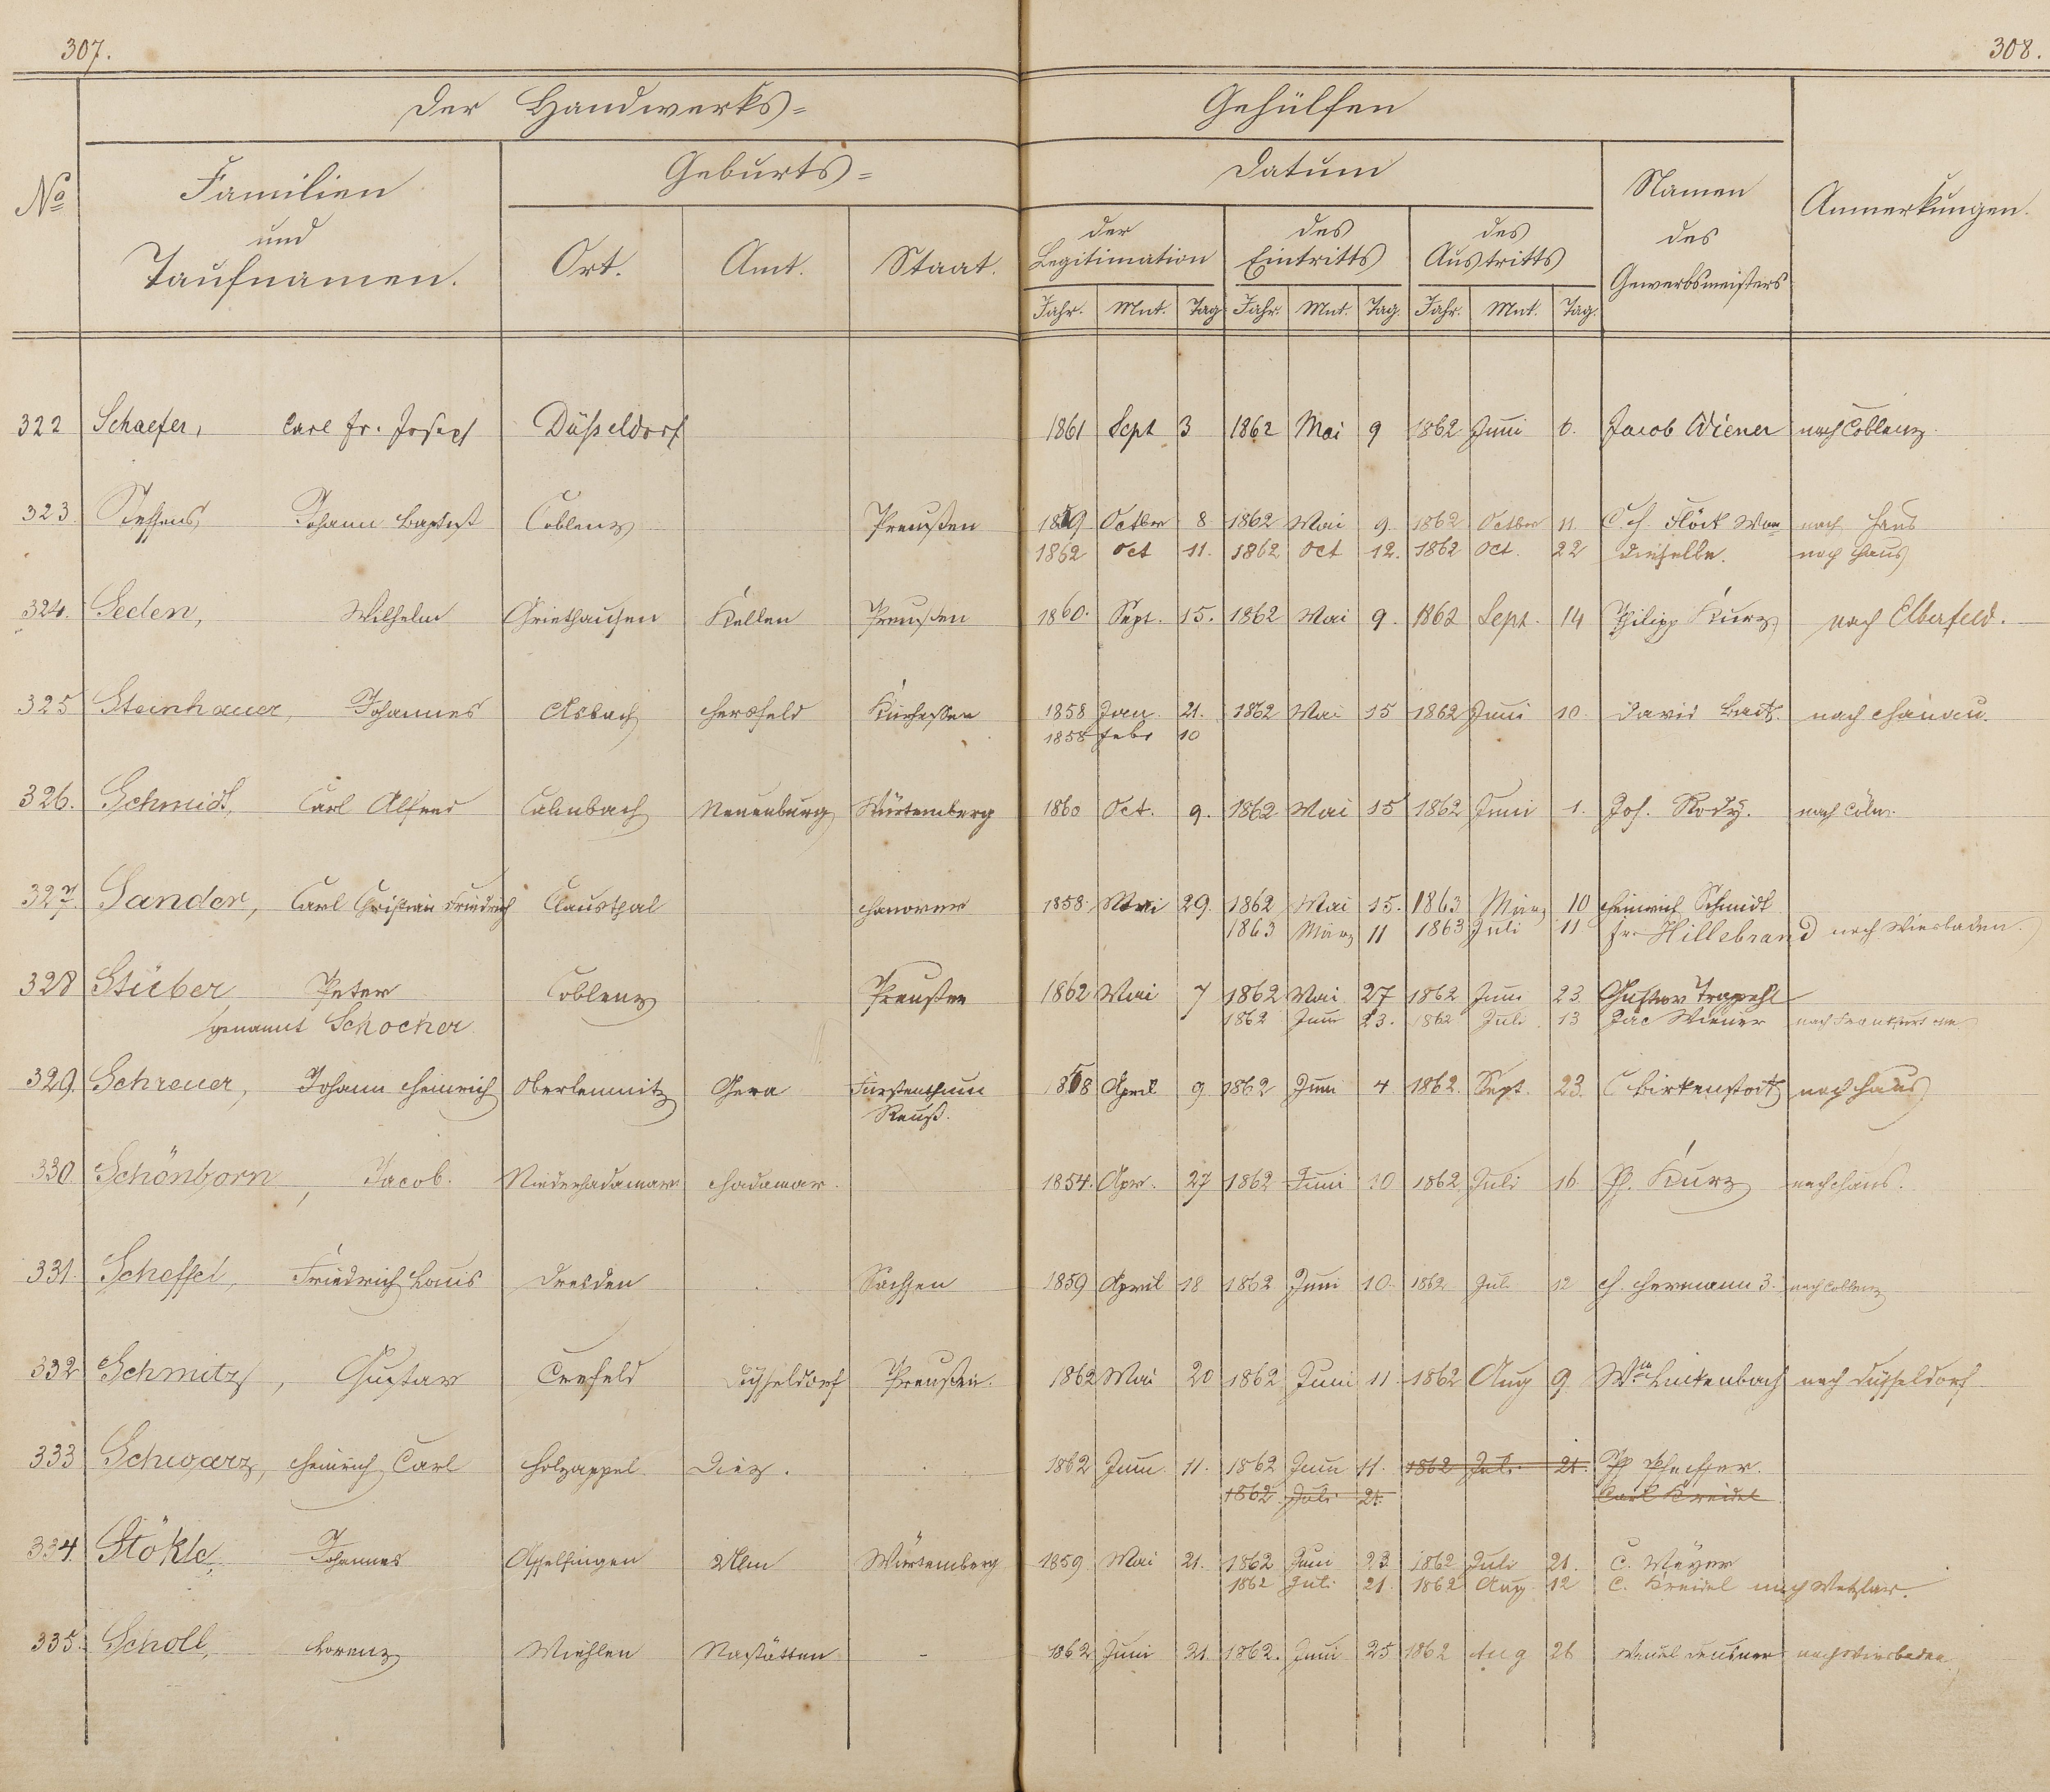 307.
308.
Der Handwerks= Gehülfen
No
Familien und Taufnamen.
Geburts=
Datum
Namen des Gewerbsmeisters
Anmerkungen.
Ort. Amt. Staat.
der Legitimation
des Eintritts
des Austritts
Jahr. Mnt. Tag Jahr. Mnt. Tag. Jahr. Mnt. Tag.
322 Schaefer, Carl Fr. Joseph Düßeldorf 1861 Sept 3 1862 Mai 9 1862 Juni 6. Jacob Wiener nach Coblenz.
323. Steffens, Johann Baptist Coblenz Preußen 1859 Octbr 8 1862 Mai 9. 1862 Octber 11. C. H. Flöck Wwe nach Haus
1862 Oct 11. 1862 Oct 12. 1862 Oct. 22 dieselbe. nach Haus
324. Seden, Wilhelm Griethausen Kellen Preußen 1860. Sept. 15. 1862 Mai 9. 1862 Sept. 14 Philipp Kurz nach Elberfeld.
325 Steinhauer, Johannes Asbach Hersfeld Kurhessen 1858 Jan. 21. 1862 Mai 15 1862 Juni 10. David Back. nach Hanau.
1858 Febr 10
326. Schmidt, Carl Alfred Calmbach Neuenburg Würtemberg 1860 Oct. 9. 1862 Mai 15 1862 Juni 1. Jos. Rody. nach Cöln.
327. Sander, Carl Christian Friedrich Clausthal Hanover 1858. Mai 29. 1862 Mai 15. 1863 März 10 Heinrich Schmidt
1863 März 11 1863 Juli 11 Fr. Hillebrand nach Wiesbaden.
328 Stüber Peter Coblenz Preußen 1862 Mai 7 1862 Mai 27 1862 Juni 23. Gustav Trapehl
genannt Schocher 1862 Juni 23. 1862 Juli 13 Jac Wiener nach Frankfurt a/m
329. Schreuer, Johann Heinrich Oberlemnitz Gera Fürstenthum 1858 April 9 1862 Juni 4 1862. Sept. 23. C Birkenstock nach Haus
Reuß.
330. Schönborn, Jacob. Niederhadamar Hadamar. 1854. Apr. 27 1862 Juni 10 1862 Juli 16 Ph. Kurz nach Haus.
331. Scheffel, Friedrich Louis Dresden Sachsen 1859 April 18 1862 Juni 10. 1862 Juli 12 H. Hermann 3. nach Coblenz
332 Schmitz, Gustav Crefeld Düsseldorf Preußen. 1862 Mai 20 1862 Juni 11 1862 Aug 9 Wm Linkenbach nach Düsseldorf
333 Schwarz, Heinrich Carl Holzappel Diez. 1862 Juni 11. 1862 Juni 11. 1862 Juli 21. Ph Pfeiffer.
1862 Juli 21. Carl Kreidel
334. Stökle, Johannes Asselfingen Ulm Würtemberg 1859 Mai 21. 1862 Juni 23. 1862 Juli 21. C. Mayer
1862 Juli 21. 1862 Aug 12 C. Kreidel nach Wetzlar.
335. Scholl, Lorenz Miehlen Nastätten - 1862 Juni 21. 1862. Juni 25 1862 Aug 26 nach Wiesbaden